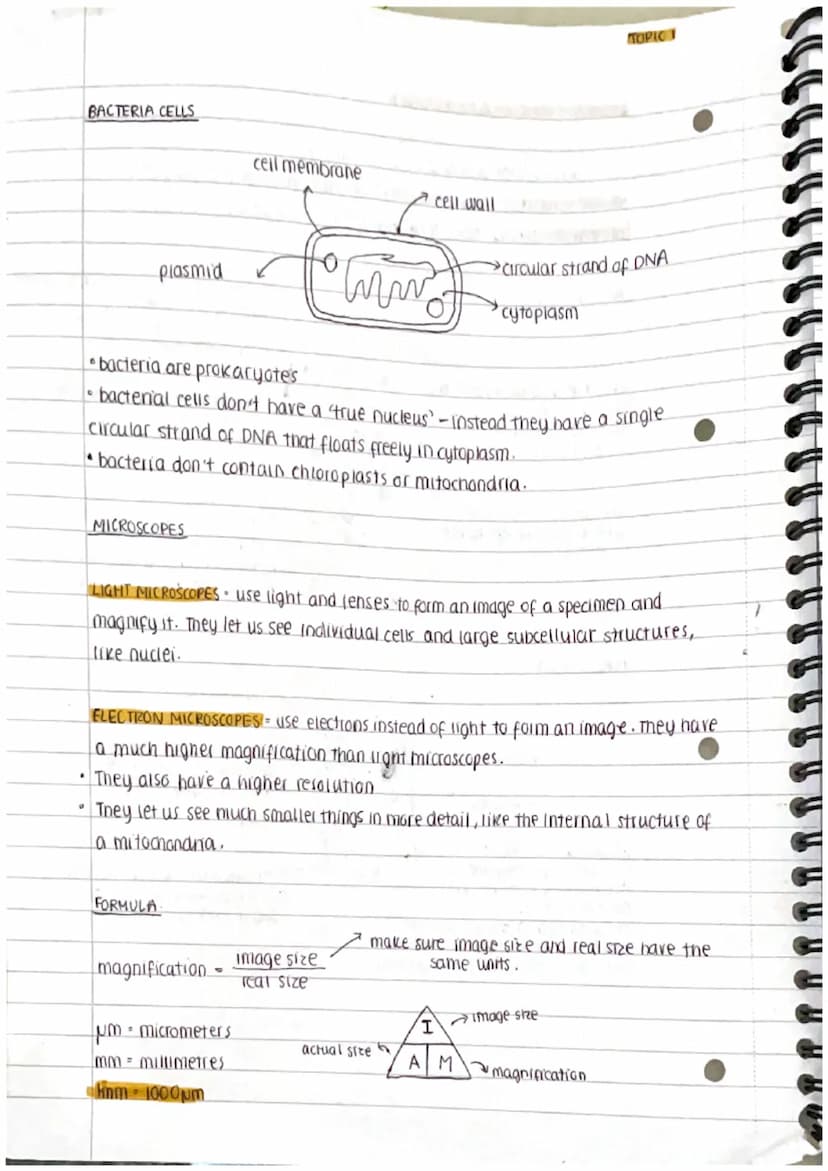 TOPIC 1
BACTERIA CELLS
cell membrane
cell wall
plasmid
circular strand of DNA
cytoplasm
• bacteria are prokaryotes
• bacterial cells don't have a 'true nucleus' - instead they have a single
circular strand of DNA that floats freely in cytoplasm.
• bacteria don't contain chloroplasts or mitochondria.
MICROSCOPES
LIGHT MICROSCOPES - use light and lenses to form an image of a specimen and
magnify it. They let us see individual cells and large subcellular structures,
like nuclei.
ELECTRON MICROSCOPES = use electrons instead of light to form an image. They have
a much higher magnification than light microscopes.
• They also have a higher resolution
• They let us see much smaller things in more detail, like the internal structure of
a mitochondria.
FORMULA
make sure image size and real size have the
same units.
magnification = image size
real size
µm = micrometers
mm = millimetres
1mm = 1000µm
I
image size
actual size
A M
magnification